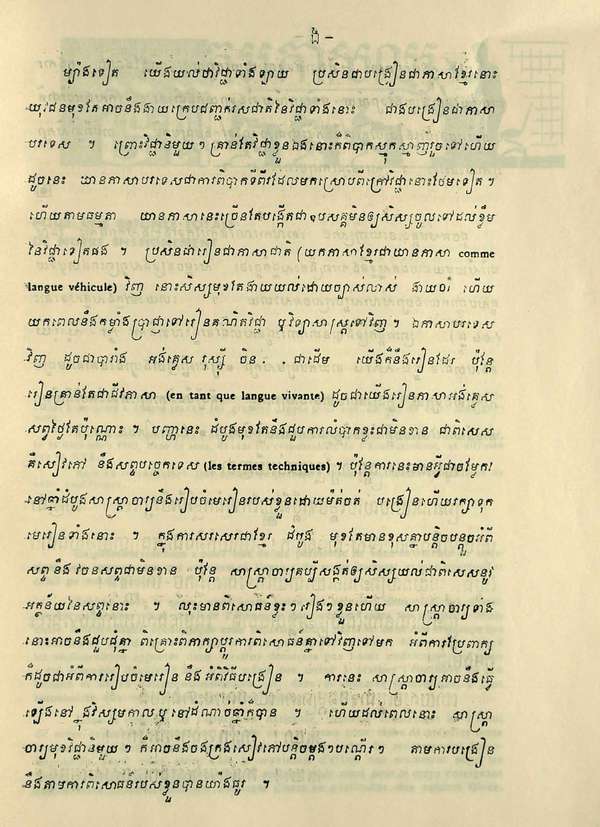 ង -
ម្យ៉ាងទៀត យើងយល់ថាវិជ្ជាទាំងឡាយ ប្រសិនជាបង្រៀនជាភាសាខ្មែរនោះ
យុវជនមុខតែអាចនឹងងាយក្រេបជញ្ជក់រសជាតិនៃវិជ្ជាទាំងនោះ ជាងបង្រៀនជាភាសា
បរទេស ។ ព្រោះវិជ្ជានិមួយ ៗ គ្រាន់តែវិជ្ជាខ្លួនឯងនោះក៏ពិបាកស្មុគស្មាញរួចទៅហើយ
ដូចនេះ យានភាសាបរទេសជាការពិបាកទីពីរដែលមកស្រោបពីក្រៅវិជ្ជានោះថែមទៀត ។
ហើយតាមធម្មតា យានភាសានេះច្រើនតែបង្កើតជាឧបសគ្គមិនឲ្យសិស្សចូលទៅដល់ខ្លឹម
នៃវិជ្ជាទៀតផង ។ ប្រសិនជារៀនជាភាសាជាតិ (យកភាសាខ្មែរជាយានភាសា comme
langue véhicule) វិញ នោះសិស្សមុខតែងាយយល់ដោយច្បាស់លាស់ ងាយចាំ ហើយ
យកពេលនឹងកម្លាំងប្រាជ្ញាទៅរៀនគណិតវិជ្ជា ឬវិទ្យាសាស្ត្រទៅវិញ ។ ឯភាសាបរទេស
វិញ ដូចជាបារាំង អង់គ្លេស រុស្ស៊ី ចិន . . ជាដើម យើងក៏នឹងរៀនដែរ ប៉ុន្តែ
រៀនគ្រាន់តែជាជីវភាសា (en tant que langue vivante) ដូចជាយើងរៀនភាសាអង់គ្លេស
សព្វថ្ងៃតែប៉ុណ្ណោះ ។ បញ្ហានេះ ដំបូងមុខតែនឹងជួបការលំបាកខ្លះជាមិនខាន ជាពិសេស
គឺសៀវភៅ នឹងសព្ទបច្ចេកទេស (les termes techniques) ។ ប៉ុន្តែការនេះមានអ្វីជាចម្លែក!
នៅឆ្នាំដំបូងសាស្ត្រាចារ្យនឹងរៀបចំមេរៀនរបស់ខ្លួនដោយម៉ត់ចត់ បង្រៀនហើយរក្សាទុក
មេរៀនទាំងនោះ ។ ក្នុងការសរសេរជាខ្មែរ ដំបូង មុខតែមានខុសគ្នាបន្តិចបន្តួចអំពី
សព្ទ នឹង វចនសព្ទជាមិនខាន ប៉ុន្តែ សាស្ត្រាចារ្យគប្បីសង្កត់ឲ្យសិស្សយល់ជាពិសេសនូវ
អត្ថន័យនៃសព្ទនោះ ។ លុះមានពិសោធន៍ខ្លះ ៗ រៀង ៗ ខ្លួនហើយ សាស្ត្រាចារ្យទាំង
នោះអាចនឹងជួបជុំគ្នា ពិគ្រោះពិភាក្សាប្តូរការពិសោធន៍គ្នាទៅវិញទៅមក អំពីការប្រែពាក្យ
ក៏ដូចជាអំពីការរៀបចំមេរៀន នឹង អំពីវិធីបង្រៀន ។ ការនេះ សាស្ត្រាចារ្យអាចនឹងធ្វើ
ឡើងនៅ ក្នុងវិស្សមកាល ឬ នៅដំណាច់ឆ្នាំក៏បាន ។ ហើយដល់ពេលនោះ សាស្ត្រា
ចារ្យមុខវិជ្ជានិមួយ ៗ ក៏អាចនឹងចងក្រងសៀវភៅបន្តិចម្តង ៗ បណ្តើរ ៗ តាមការបង្រៀន
នឹងតាមការពិសោធន៍របស់ខ្លួនបានយ៉ាងជូរ ។